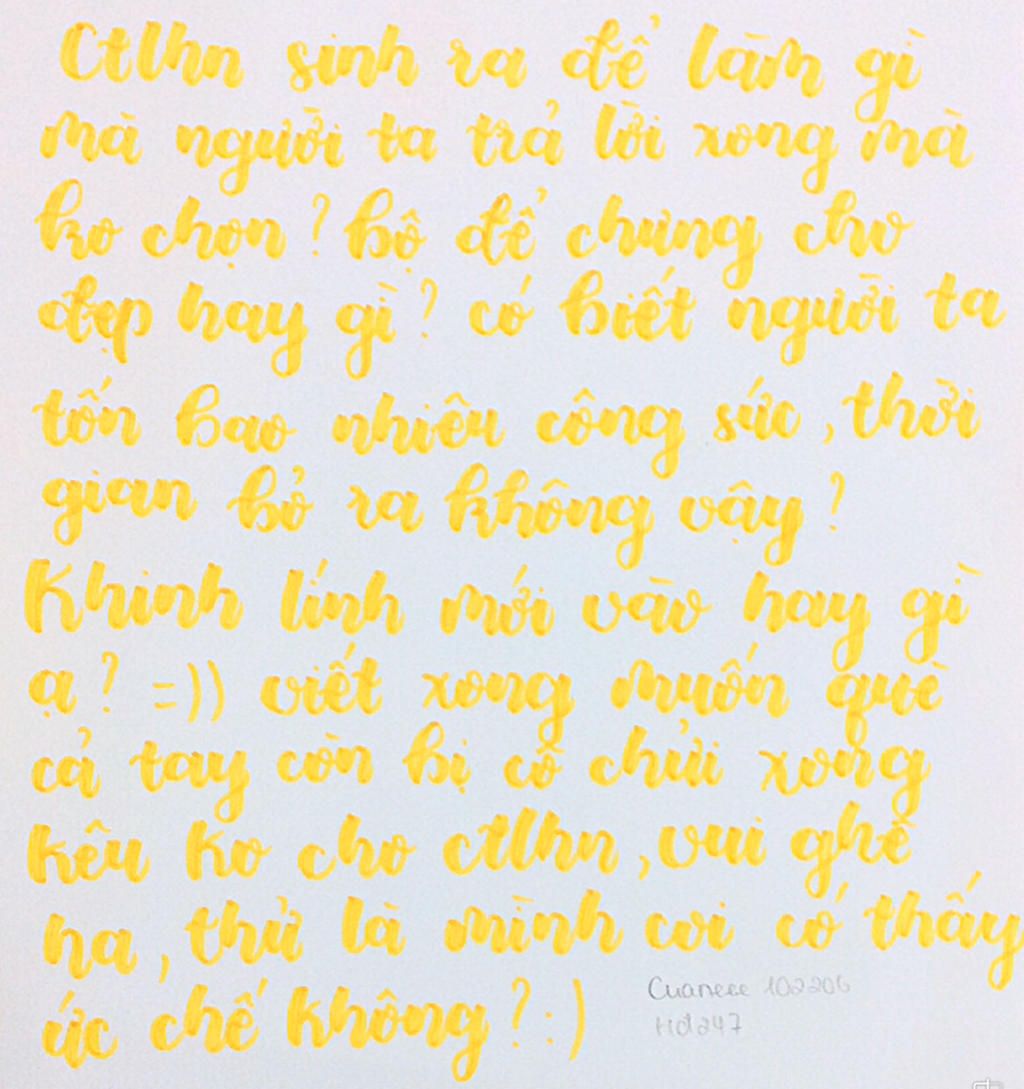 Ctlhn sinh ra để làm gì
mà người ta trả lời xong mà
ko chọn? bộ để chưng cho
đẹp hay gì? có biết người ta
tốn bao nhiêu công sức, thời
gian bỏ ra không vậy?
Khinh lính mới vào hay gì
ạ? =)) viết xong muốn què
cả tay còn bị cô chửi xong
kêu ko cho ctlhn, vui ghê
ha, thử là mình coi có thấy
ức chế không? :)
Cuaneee 102206
Hd247